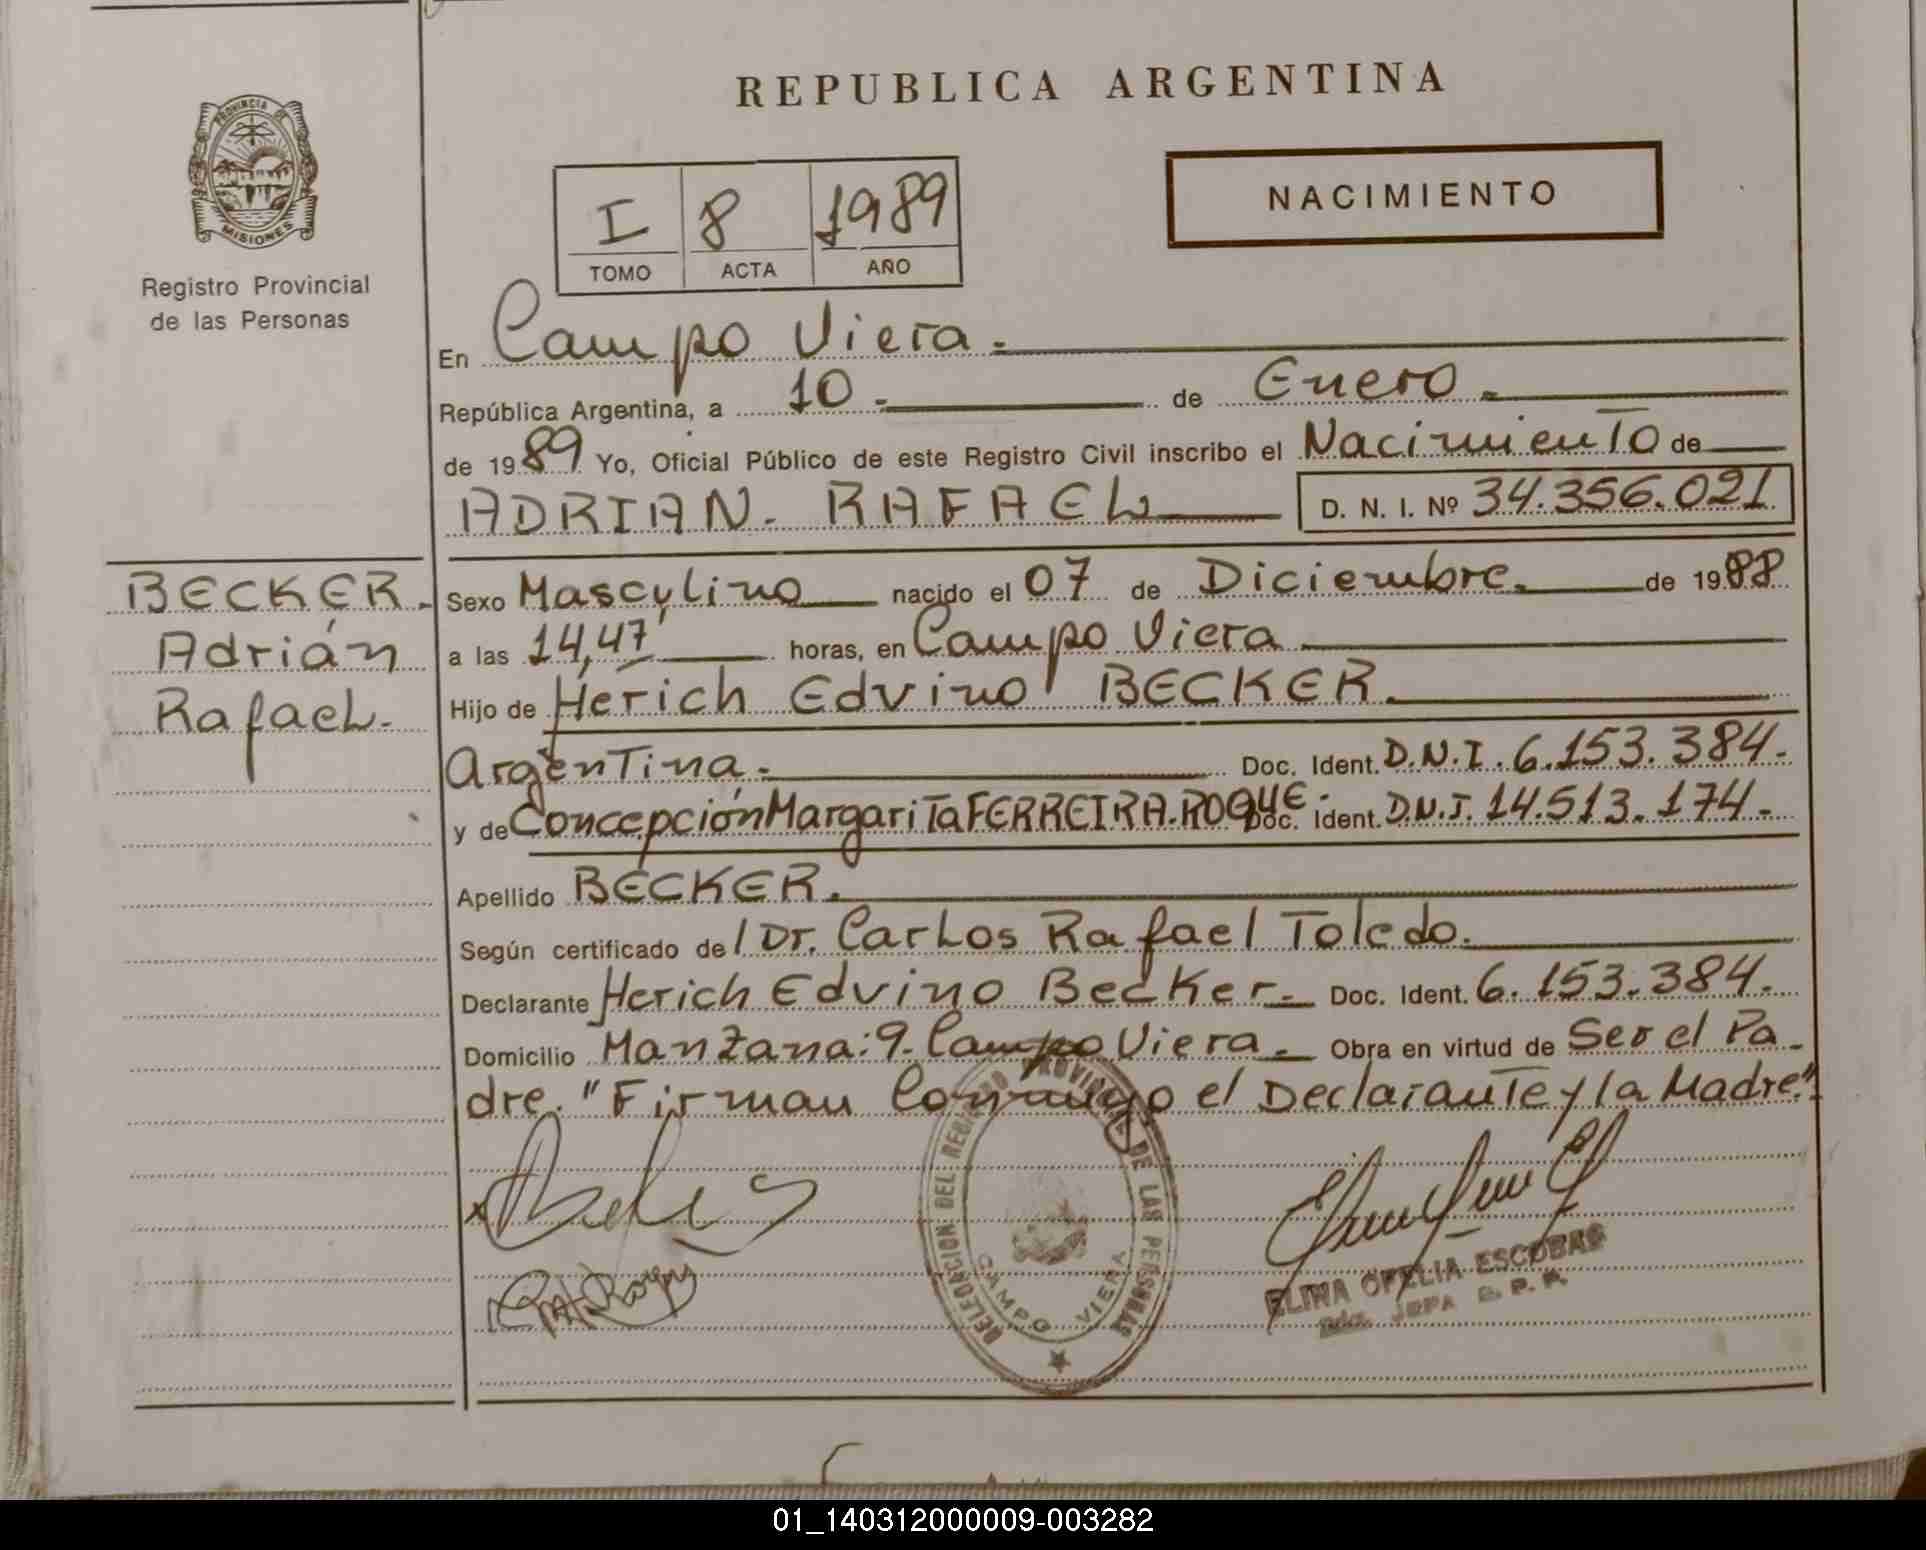 REPUBLICA ARGENTINA
PROVINCIA DE
MISIONES
Registro Provincial
de las Personas
NACIMIENTO
I 8 1989
TOMO ACTA AÑO
En Campo Viera.
República Argentina, a 10 de Enero
de 1989 Yo, Oficial Público de este Registro Civil inscribo el Nacimiento de
ADRIAN. RAFAEL D. N. I. Nº 34.356.021
BECKER.
Adrián
Rafael.
Sexo Masculino nacido el 07 de Diciembre. de 1988
a las 14,47' horas, en Campo Viera
Hijo de Herich Edvino BECKER.
Argentina. Doc. Ident. D.N.I. 6.153.384.
y de Concepción Margarita FERREIRA.ROQUE. Doc. Ident. D.N.I. 14.513.174.
Apellido BECKER.
Según certificado del Dr. Carlos Rafael Toledo.
Declarante Herich Edvino Becker. Doc. Ident. 6.153.384.
Domicilio Manzana: 9. Campo Viera. Obra en virtud de Ser el Pa-
dre. "Firman Conmigo el Declarante y la Madre".
DELEGACION DEL REGISTRO PROVINCIAL DE LAS PERSONAS
CAMPO VIERA
ELINA OFELIA ESCOBAR
01_140312000009-003282